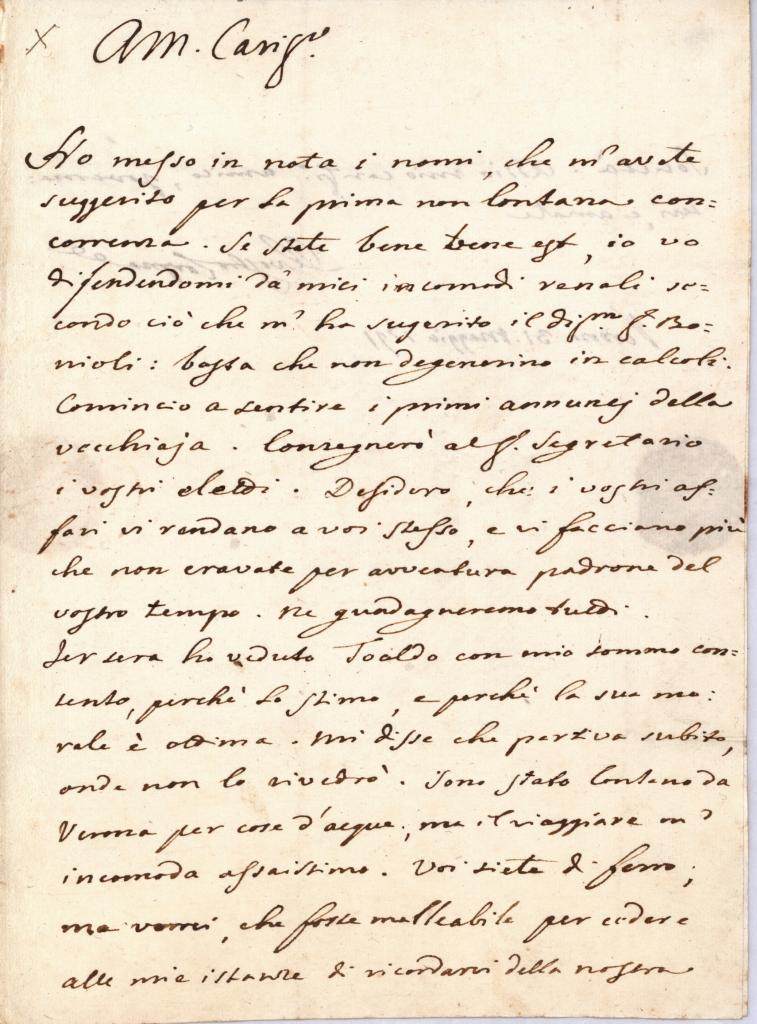 x
Am. Carigᵒ.
Ho messo in nota i nomi, che m'avete
suggerito per la prima non lontana con=
correnza. Se state bene bene est, io vo
difendendomi da' miei incomodi renali se=
condo ciò che m' ha sugerito il S. Bo=
nioli: basta che non degenerino in calcoli.
Comincio a sentire i primi annunzj della
vecchiaja. Consegnerò al S. Segretario
i vostri. Desidero, che i vostri af=
fari vi rendano a voi stesso, e vi facciano più
che non eravate per avventura padrone del
vostro tempo. Ne guadagneremo tutti.
Jer sera ho veduto Toaldo con mio sommo con=
tento, perchè lo stimo, e perchè la sua mo=
rale è ottima. Mi disse che partiva subito,
onde non lo rivedrò. Sono stato lontano da
Verona per cose d'acque, ma il viaggiare m'
incomoda assaissimo. Voi siete di ferro,
ma vorrei, che foste malleabile per cedere
alle mie istanze di ricordarvi della nostra